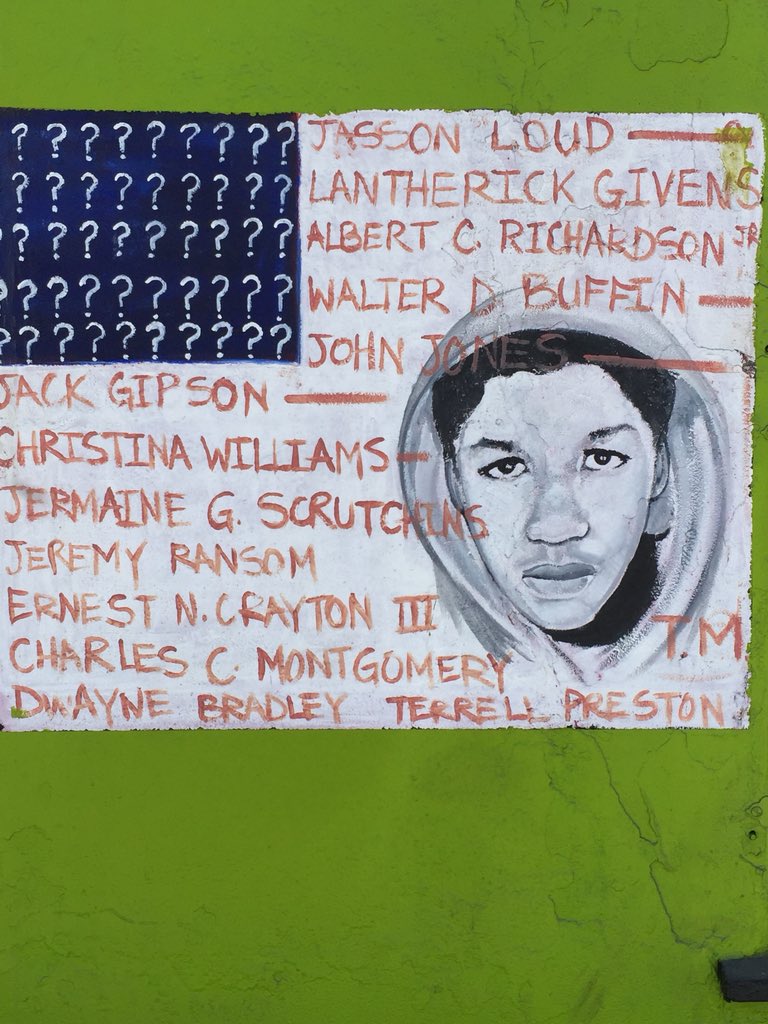 ? ? ? ? ? ? ? ? ?
JASSON LOUD
? ? ? ? ? ? ? ? ?
LANTHERICK GIVENS
? ? ? ? ? ? ? ? ?
ALBERT C. RICHARDSON JR
? ? ? ? ? ? ? ? ?
WALTER D. BUFFIN
? ? ? ? ? ? ? ? ?
JOHN JONES
JACK GIPSON
CHRISTINA WILLIAMS
JERMAINE G. SCRUTCHINS
JEREMY RANSOM
ERNEST N. CRAYTON III
T.M
CHARLES C. MONTGOMERY
DWAYNE BRADLEY TERRELL PRESTON